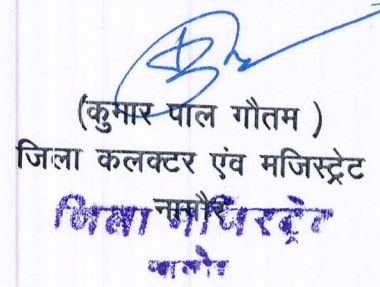 (कुमार पाल गौतम )
जिला कलक्टर एंव मजिस्ट्रेट
नागौर
जिला मजिस्ट्रेट
नागौर